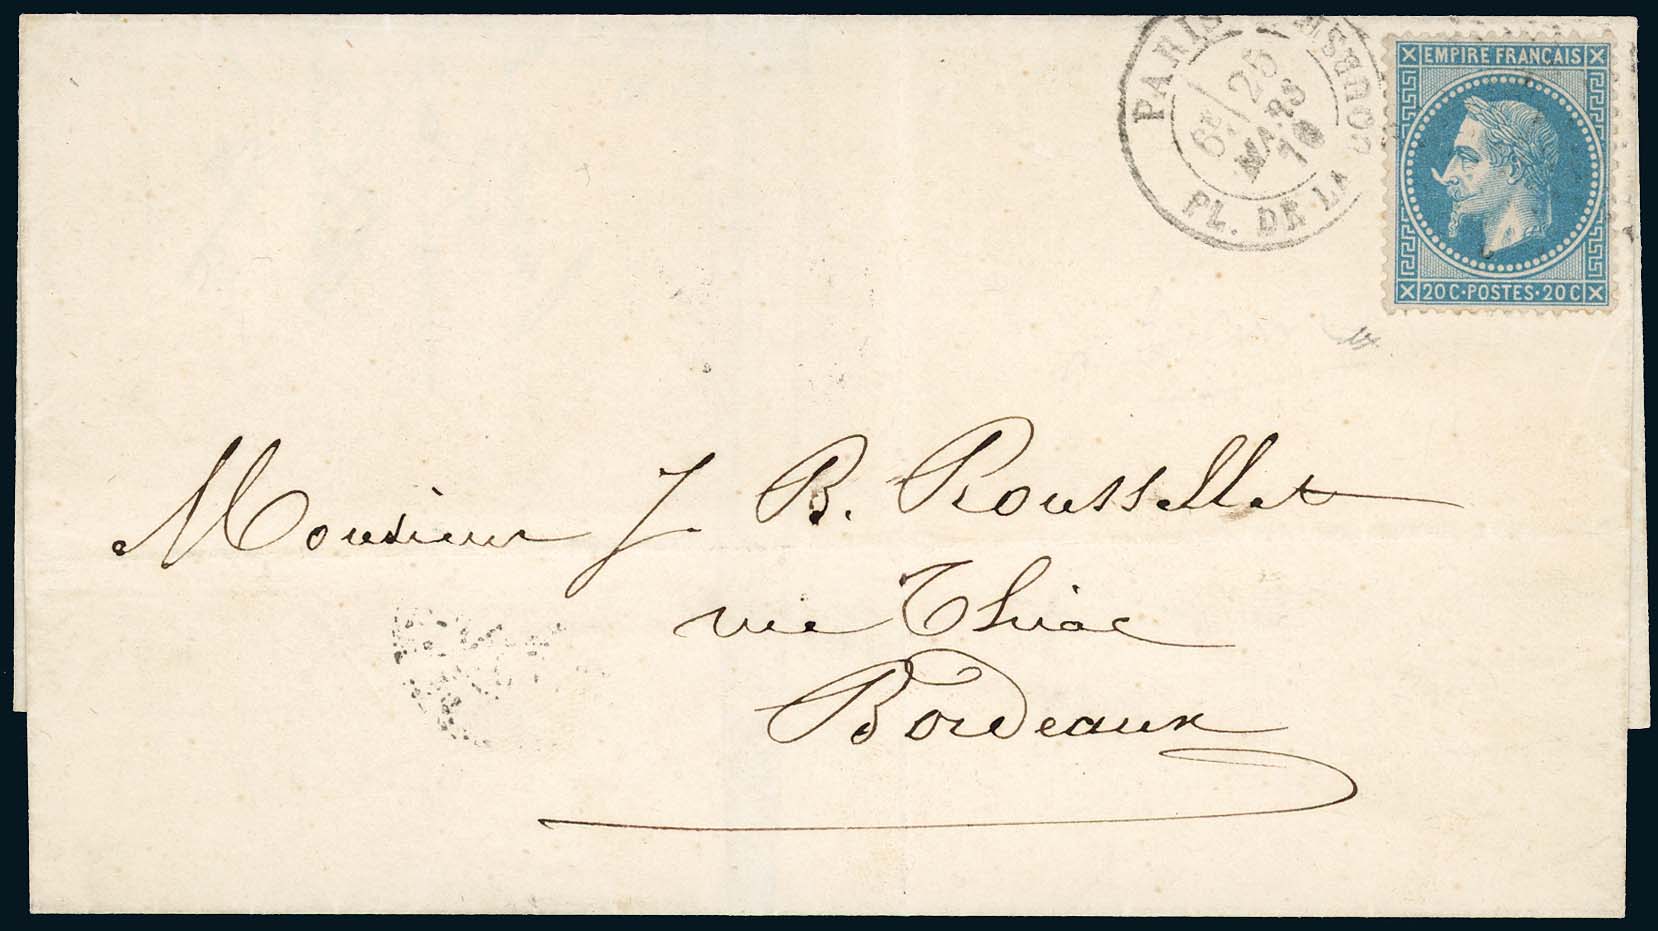 PARIS PL. DE LA BOURSE
6E 25 MARS 70
EMPIRE FRANÇAIS
20 C · POSTES · 20 C
Monsieur J. B. Roussellet
rue Thiac
Bordeaux